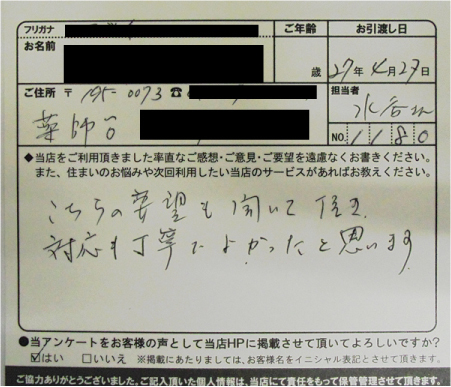 フリガナ ご年齢 お引渡し日
お名前 歳 27年4月27日
ご住所 〒 195-0073 ☎ 担当者
薬師台 水谷
NO. 1180
◆当店をご利用頂きました率直なご感想・ご意見・ご要望を遠慮なくお書きください。
また、住まいのお悩みや次回利用したい当店のサービスがあればお教えください。
こちらの要望も聞いて頂き、
対応も丁寧でよかったと思います
●当アンケートをお客様の声として当店HPに掲載させて頂いてよろしいですか?
☑はい □いいえ ※掲載にあたりましては、お客様名をイニシャル表記とさせて頂きます。
ご協力ありがとうございました。ご記入頂いた個人情報は、当店にて責任をもって保管管理させて頂きます。